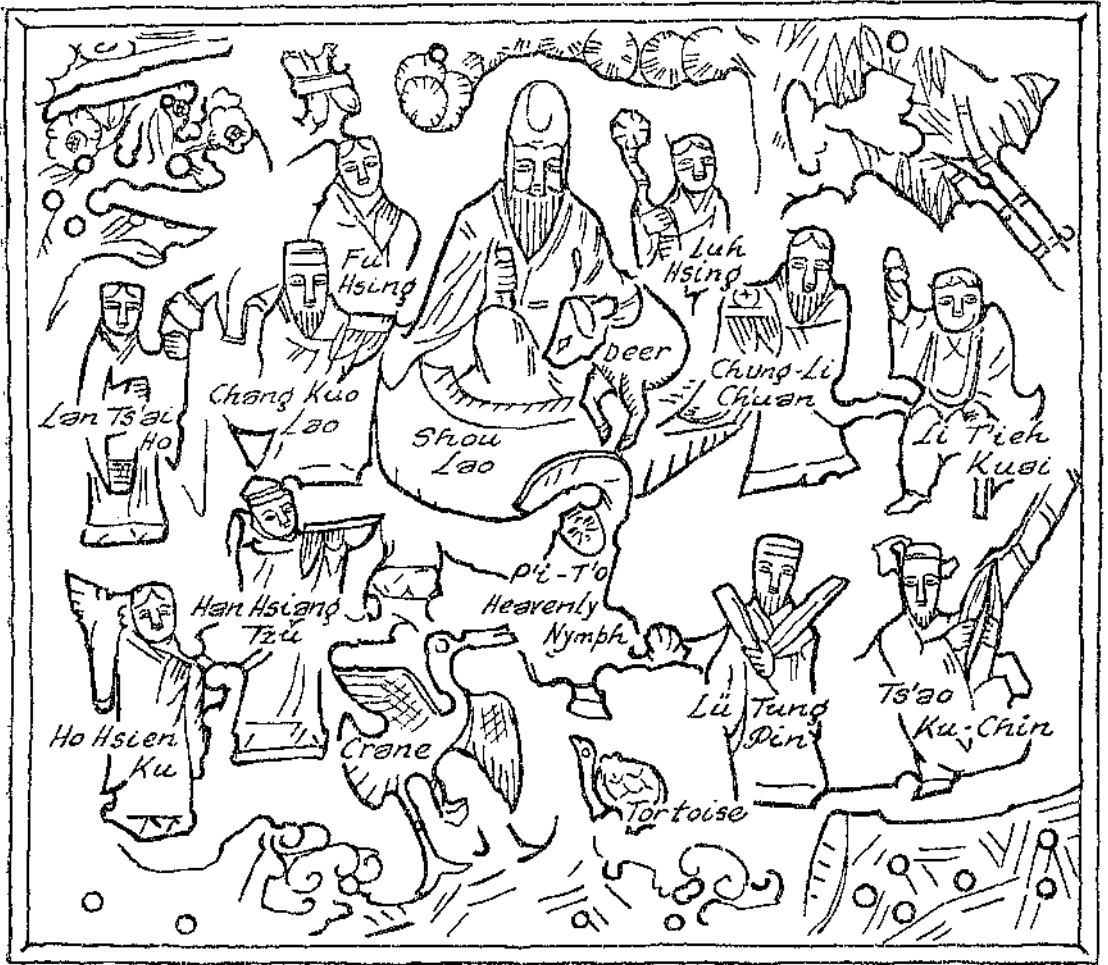 Fu
Hsing
Luh
Hsing
Deer
Lan Ts'ai
Ho
Chang Kuo
Lao
Shou
Lao
Chung-Li
Ch'uan
Li T'ieh
Kuai
Han Hsiang
Tzŭ
P'i-T'o
Heavenly
Nymph
Ho Hsien
Ku
Crane
Lü Tung
Pin
Ts'ao
Ku-Chin
Tortoise